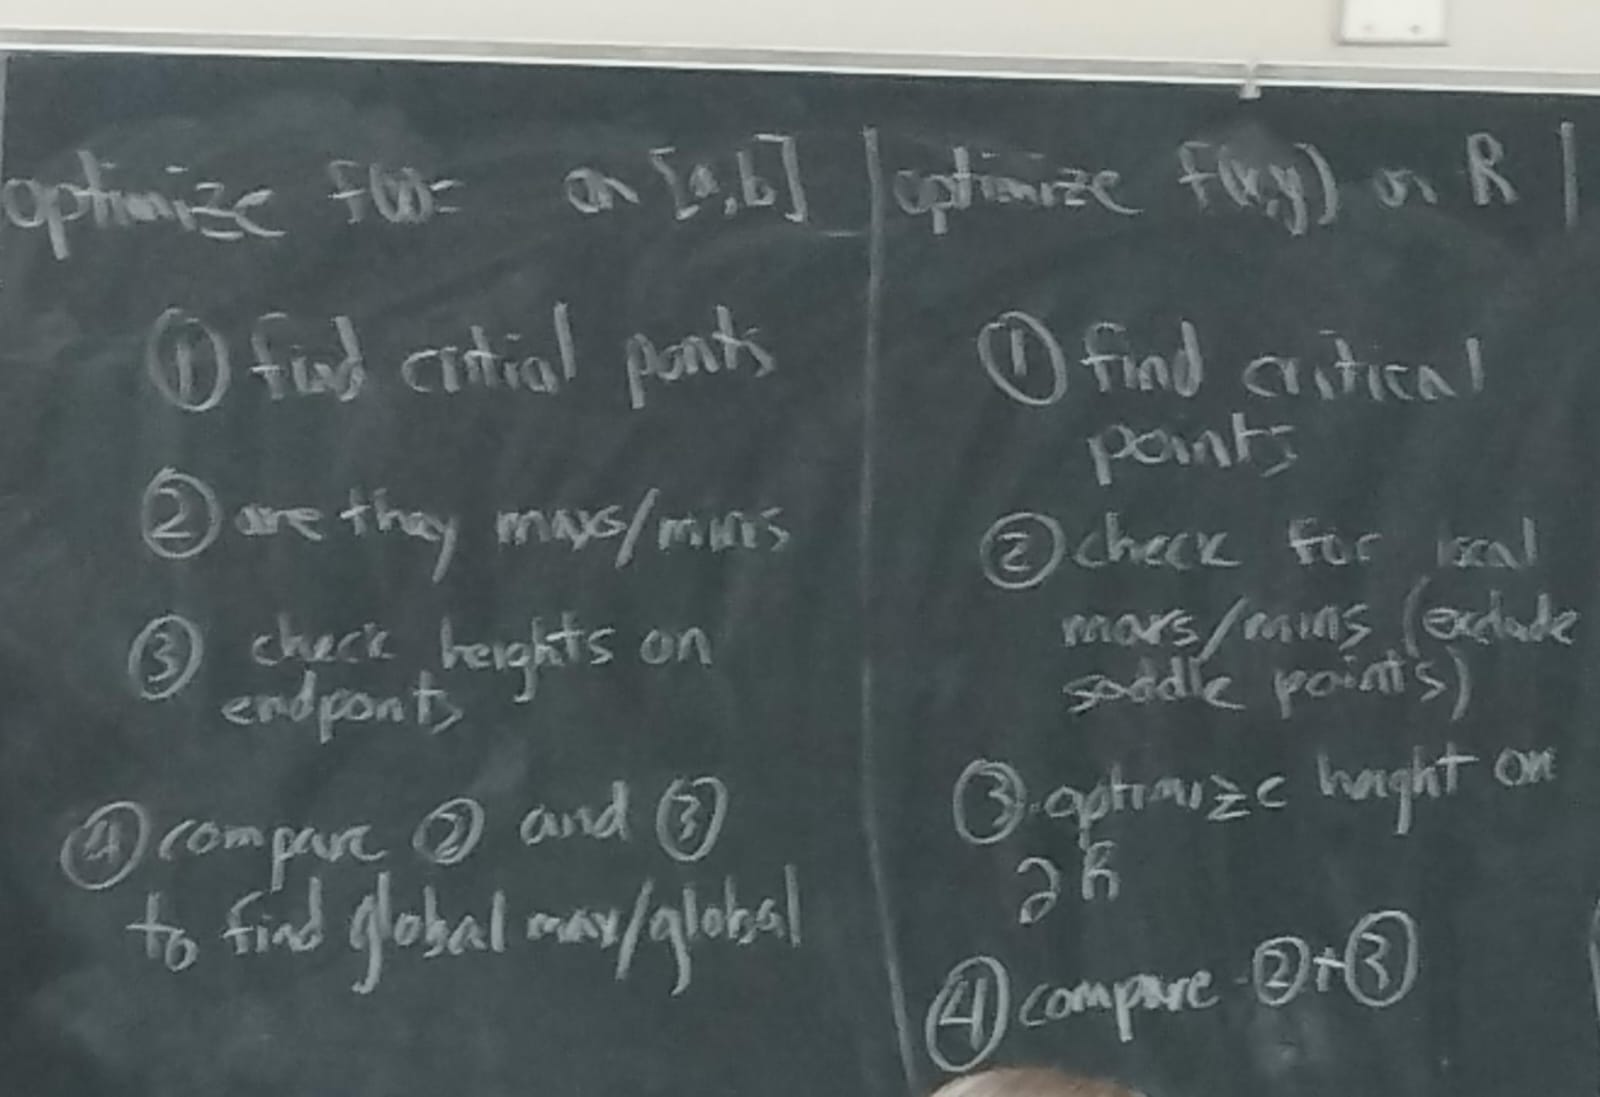 optimize f(x)= on [a,b]
① find critial points
② are they maxs/mins
③ check heights on
endponts
④ compare ② and ③
to find global max/global
optimize f(x,y) on R
① find critical
points
② check for local
maxs/mins (exclude
saddle points)
③ optimize height on
∂R
④ compare ②+③